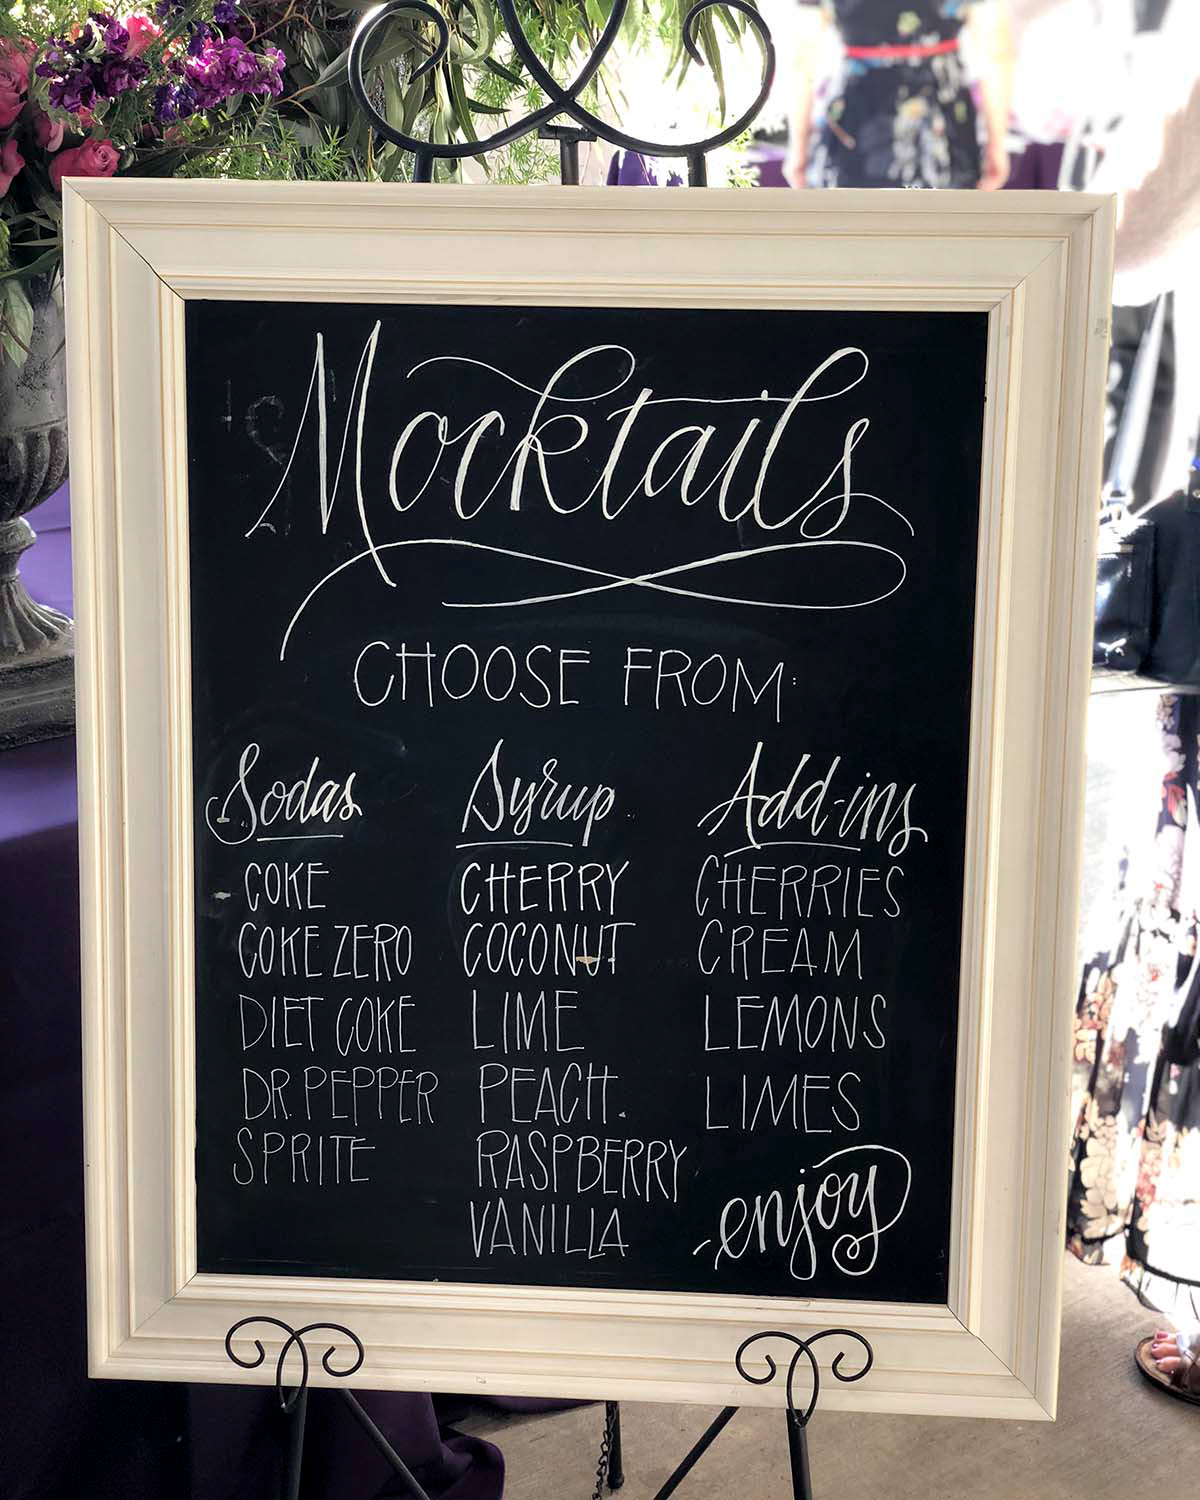 Mocktails
CHOOSE FROM:
Sodas
COKE
COKE ZERO
DIET COKE
DR. PEPPER
SPRITE
Syrup
CHERRY
COCONUT
LIME
PEACH
RASPBERRY
VANILLA
Add-ins
CHERRIES
CREAM
LEMONS
LIMES
enjoy